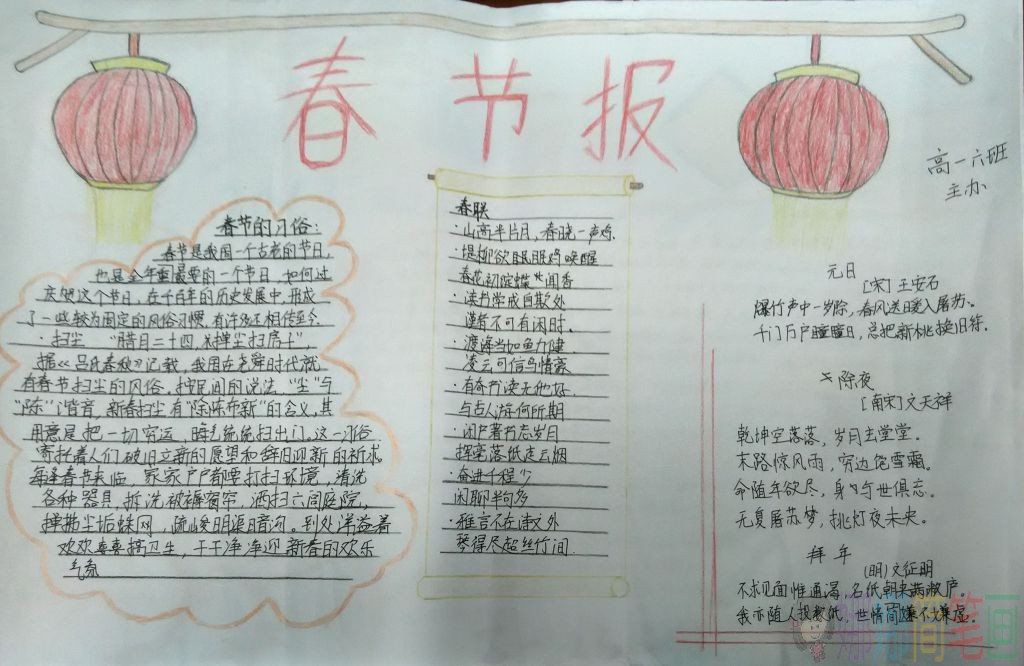 春节报
高一六班
主办
春节的习俗:
春节是我国一个古老的节日,
也是全年最重要的一个节日,如何过
庆贺这个节日,在千百年的历史发展中,形成
了一些较为固定的风俗习惯,有许多还相传至今.
·扫尘 "腊月二十四,掸尘扫房子",
据《吕氏春秋》记载,我国在尧舜时代就
有春节扫尘的风俗,按民间的说法:"尘"与
"陈"谐音,新春扫尘有"除陈布新"的含义,其
用意是把一切穷运,晦气统统扫出门.这一习俗
寄托着人们破旧立新的愿望和辞旧迎新的祈求
每逢春节来临,家家户户都要打扫环境,清洗
各种器具,拆洗被褥窗帘,洒扫六闾庭院,
掸拂尘垢蛛网,疏浚明渠暗沟.到处洋溢着
欢欢喜喜搞卫生,干干净净迎新春的欢乐
气氛
春联
·山高半片月,春晓一声鸡.
·堤柳欲眠眠鸡唤醒
春花初绽蝶先闻香
·读书学成自欺处
谨者不可有闲时.
·渡海当如鱼力健,
凌云可信鸟情豪
·有奇书读无他好.
与古人游何所期
·闭户著书忘岁月
挥毫落纸走云烟
·奋进千程少
闲聊半句多
·雅言不在诗文外
琴得尽超丝竹间.
元日
[宋]王安石
爆竹声中一岁除,春风送暖入屠苏.
千门万户曈曈日,总把新桃换旧符.
除夜
[南宋]文天祥
乾坤空落落,岁月去堂堂.
末路惊风雨,穷边饱雪霜.
命随年欲尽,身与世俱忘.
无复屠苏梦,挑灯夜未央.
拜年
(明)文征明
不求见面惟通谒,名纸朝来满敝庐.
我亦随人投数纸,世情嫌简不嫌虚.